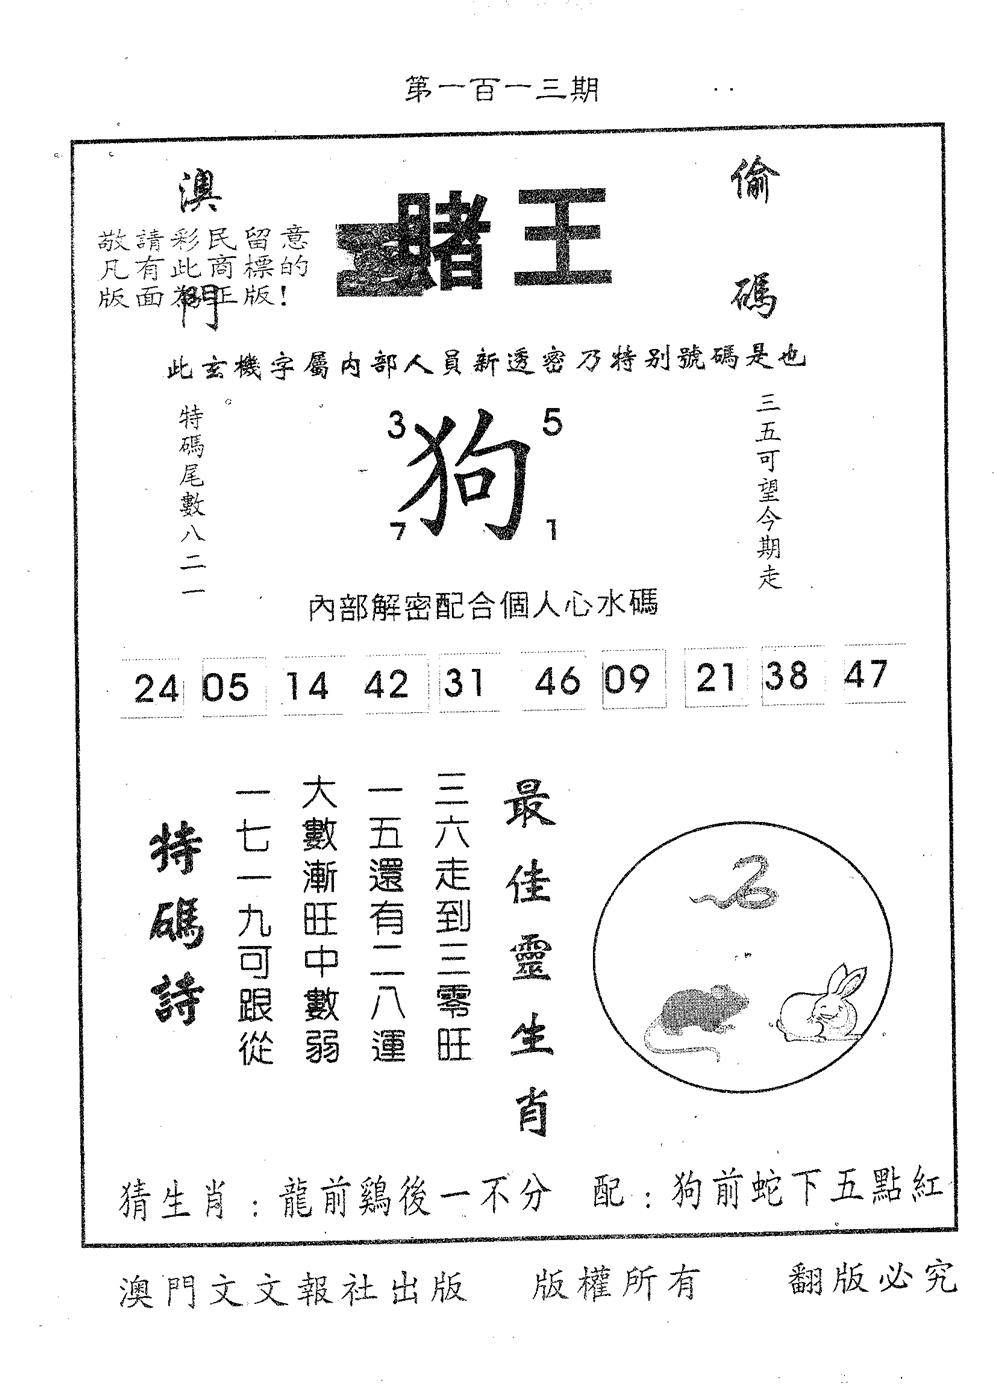 第一百一十三期
澳門
賭王
偷碼
敬請彩民留意
凡有此商標的
版面為正版!
此玄機字屬內部人員新透密乃特别號碼是也
特碼尾數八二一
3
5
狗
7
1
三五可望今期走
內部解密配合個人心水碼
24 05 14 42 31 46 09 21 38 47
最佳靈生肖
三六走到三零旺
一五還有二八運
大數漸旺中數弱
一七一九可跟從
特碼詩
猜生肖:龍前鷄後一不分 配:狗前蛇下五點紅
澳門文文報社出版 版權所有 翻版必究